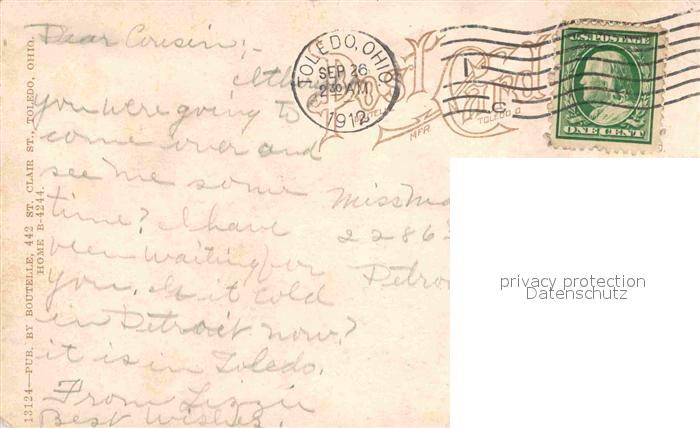 Dear Cousin;-
I th
you were going to
come over and
see me some
time? I have
been waiting for
you. Is it cold
in Detroit now?
it is in Toledo.
From Lizzie
Best Wishes.
TOLEDO, OHIO
SEP 26
2 30 AM
1912
Post Card
MFR.
TOLEDO O
C
U.S. POSTAGE
ONE CENT
Miss Ma
2286
Detro
13124—PUB. BY BOUTELLE, 442 ST. CLAIR ST., TOLEDO, OHIO.
HOME B-4244.
privacy protection
Datenschutz